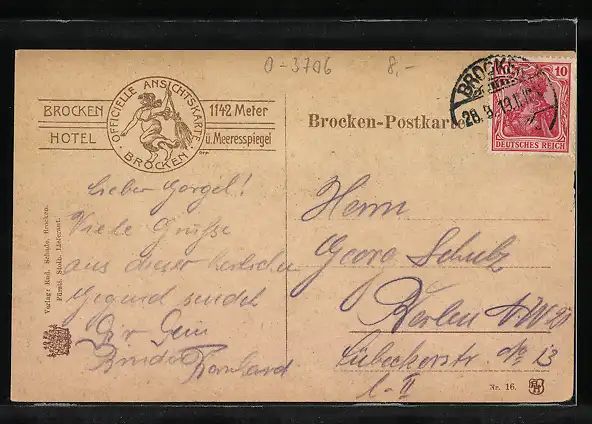 O-3706
8,-
BROCKEN
HOTEL
OFFICIELLE ANSICHTSKARTE
BROCKEN
1142 Meter
ü. Meeresspiegel
Brocken-Postkarte
BROCKEN
26.9.13
10
DEUTSCHES REICH
Lieber Gorgel!
Viele Grüsse
aus dieser herrlichen
Gegend sendet
Dir Dein
Bruder Bernhard
Herrn
Georg Schulz
Berlin N.W 21
Lübeckerstr. No 13
II
Verlag: Rud. Schade, Brocken.
Fürstl. Stolb. Lieferant.
Nr. 16.